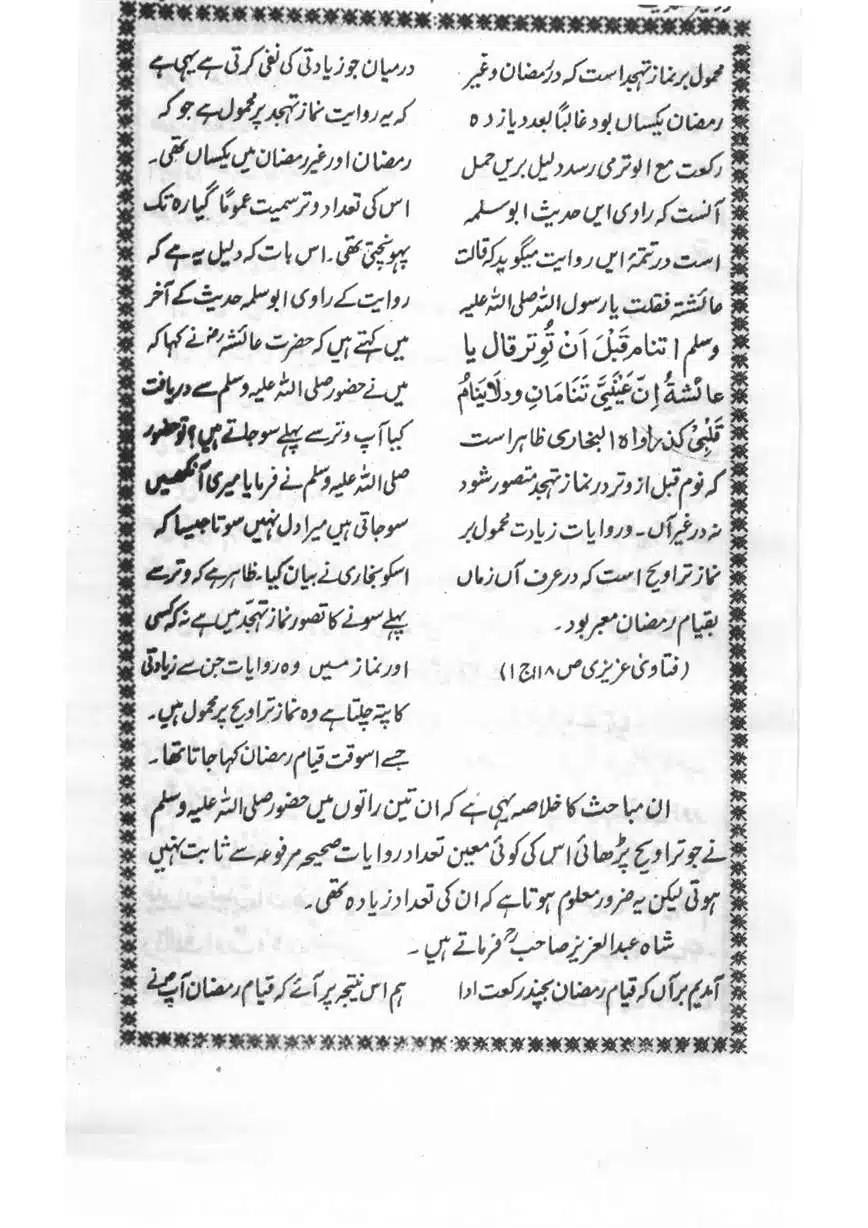 محمول بر نماز تہجد است کہ در رمضان و غیر
رمضان یکساں بود غالباً بعدد یازدہ
رکعت مع الوتر می رسد دلیل بریں حمل
آنست کہ راوی ایں حدیث ابوسلمہ
است در تتمۂ ایں روایت میگوید کہ قالت
عائشۃ فقلت یا رسول اللہ صلی اللہ علیہ
وسلم اتنام قَبْلَ اَنْ تُوتر قال یا
عائشۃُ اِنَّ عَیْنَیَّ تَنَامَانِ ودلَا یَنَامُ
قَلْبِیْ کذا رواہ البخاری ظاہر است
کہ نوم قبل از وتر در نماز تہجد متصور شود
نہ در غیر آں ۔ و روایات زیادت محمول بر
نماز تراویح است کہ در عرف آں زماں
بقیام رمضان معبر بود ۔
(فتاویٰ عزیزی ص ۱۱۸ ج ۱)
درمیان جو زیادتی کی نفی کرتی ہے یہی ہے
کہ یہ روایت نماز تہجد پر محمول ہے جو کہ
رمضان اور غیر رمضان میں یکساں تھی ۔
اس کی تعداد وتر سمیت عموماً گیارہ تک
پہونچتی تھی ۔ اس بات کہ دلیل یہ ہے کہ
روایت کے راوی ابوسلمہ حدیث کے آخر
میں کہتے ہیں کہ حضرت عائشہ رض نے کہا کہ
میں نے حضور صلی اللہ علیہ وسلم سے دریافت
کیا آپ وتر سے پہلے سو جاتے ہیں؟ تو حضور
صلی اللہ علیہ وسلم نے فرمایا میری آنکھیں
سو جاتی ہیں میرا دل نہیں سوتا جیسا کہ
اسکو بخاری نے بیان کیا ۔ ظاہر ہے کہ وتر سے
پہلے سونے کا تصور نماز تہجّد میں ہے نہ کہ کسی
اور نماز میں وہ روایات جن سے زیادتی
کا پتہ چلتا ہے وہ نماز تراویح پر محمول ہیں ۔
جسے اسوقت قیام رمضان کہا جاتا تھا ۔
ان مباحث کا خلاصہ یہی ہے کہ ان تین راتوں میں حضور صلی اللہ علیہ وسلم
نے جو تراویح پڑھائی اس کی کوئی معین تعداد روایات صحیحہ مرفوعہ سے ثابت نہیں
ہوتی لیکن یہ ضرور معلوم ہوتا ہے کہ ان کی تعداد زیادہ تھی ۔
شاہ عبدالعزیز صاحبؒ فرماتے ہیں ۔
آمدیم برآں کہ قیام رمضان بچند رکعت ادا
ہم اس نتیجہ پر آئے کہ قیام رمضان آپؐ نے